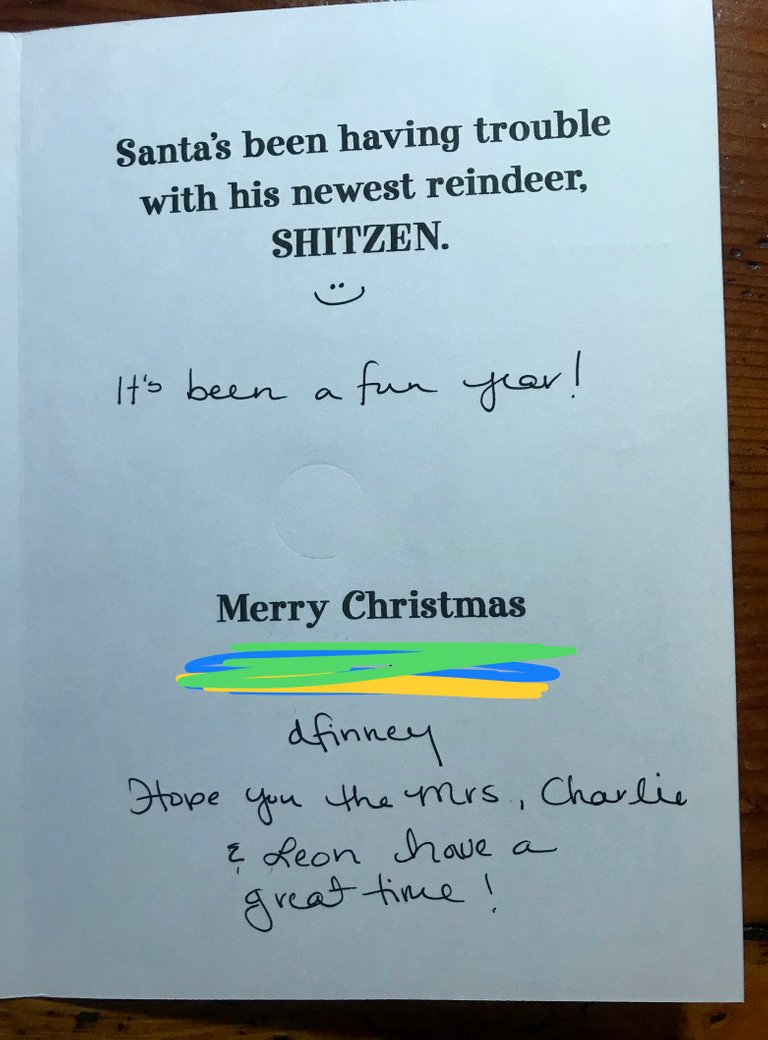 Santa's been having trouble
with his newest reindeer,
SHITZEN.
It's been a fun year!
Merry Christmas
dfinney
Hope you the Mrs, Charlie
& Leon have a
great time!